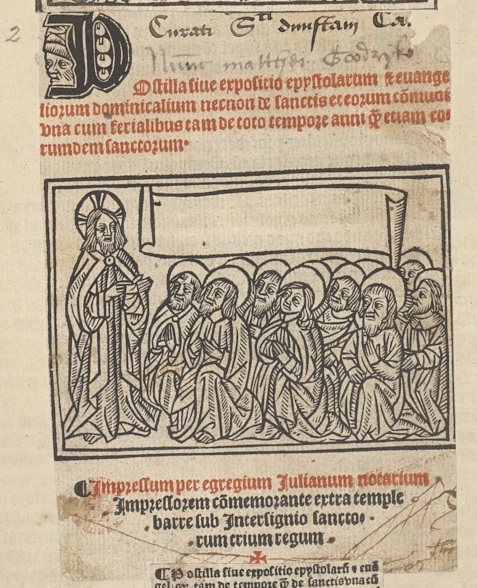 2
Curati Sti dunstani Ca.
Nunc matthei
POstilla siue expositio epystolarum & euange
liorum dominicalium necnon de sanctis et eorum cõmuni
vna cum ferialibus tam de toto tempore anni q̃ etiam eo
rumdem sanctorum.
¶Impressum per egregium Julianum notarium
Impressorem cõmemorante extra temple
barre sub Intersignio sancto
rum trium regum.
¶Postilla siue expositio epystolarũ & euã
gelior. tam de tempore q̃ de sanctis vna cũ